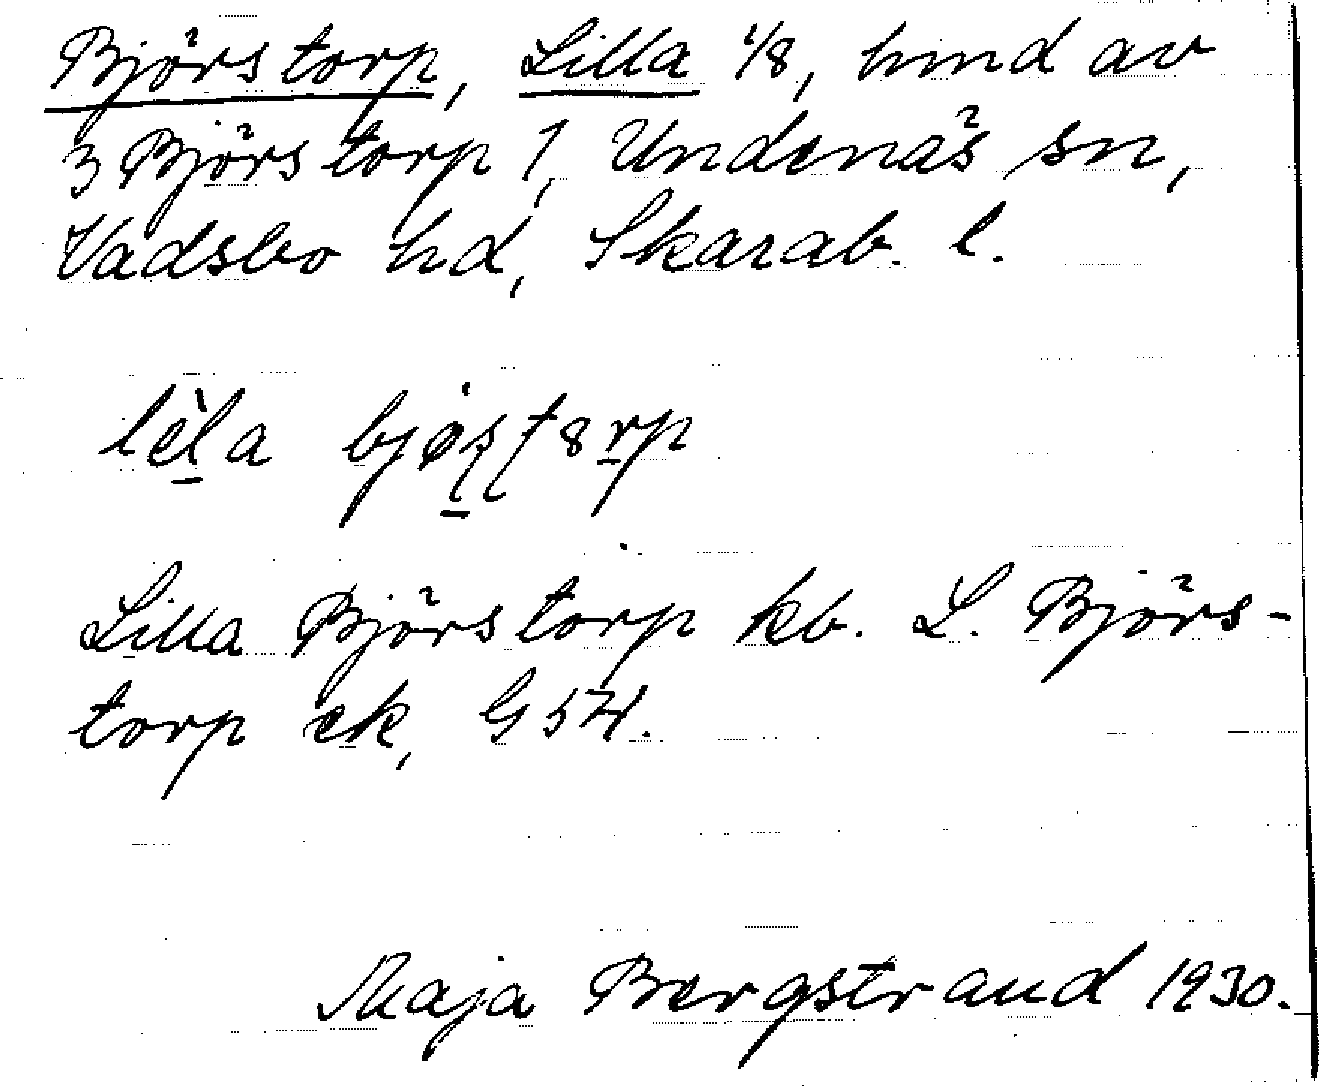 Björstorp, Lilla 1/8, hmd av
3 Björstorp 1, Undenäs sn,
Vadsbo hd, Skarab. l.
lèla
Lilla Björstorp kb. L. Björs-
torp ek, G 54.
Maja Bergstrand 1930.